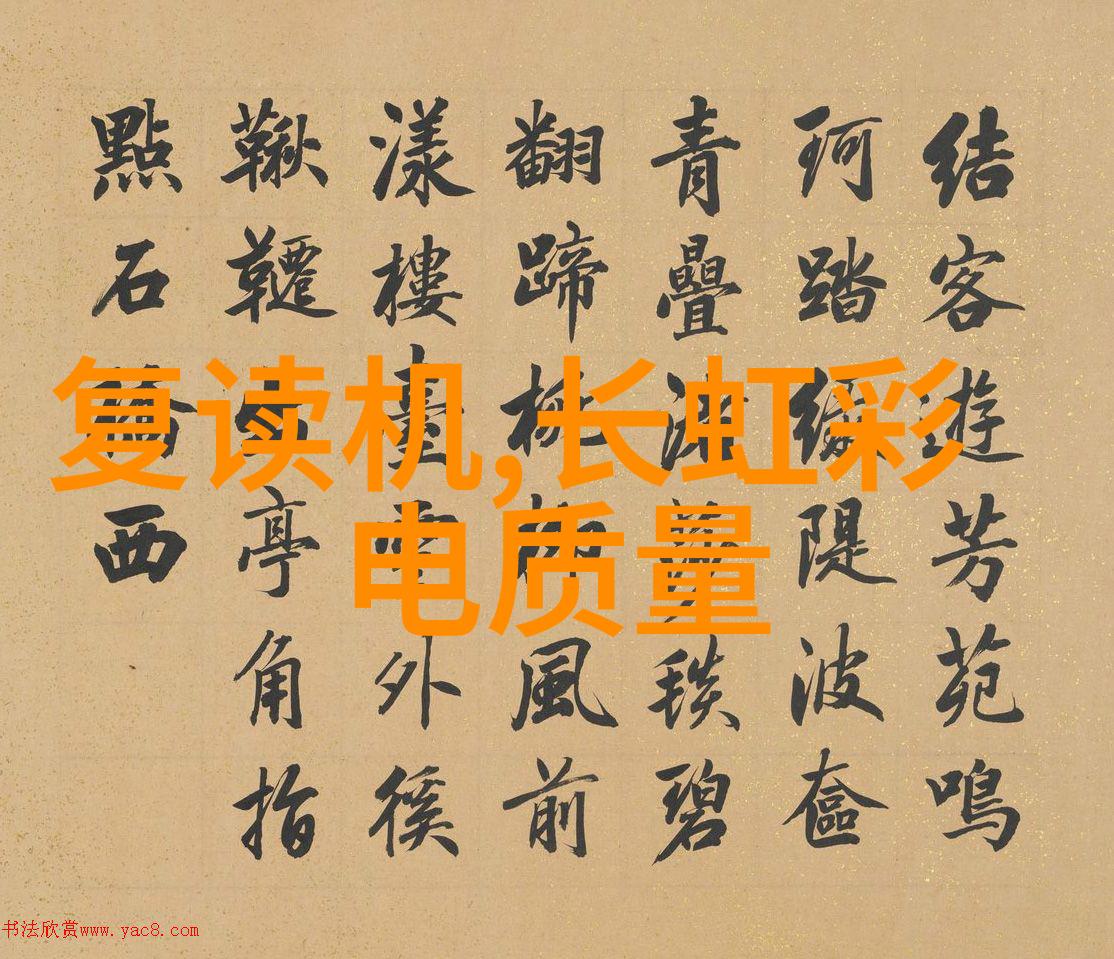 結客遊芳苑鳴
珂踏隄波奩
青疊碧
翻蹄風前
漾樓臺外徯
鞦韆亭角指
點石西
复读机,长虹彩
电质量
书法欣赏www.yac8.com